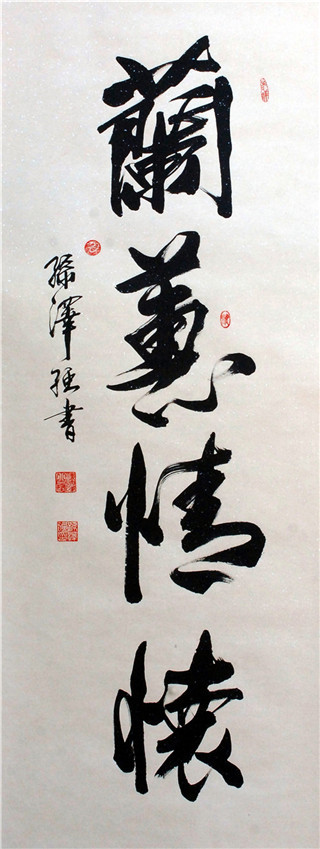 蘭蕙情懷
孫澤
書